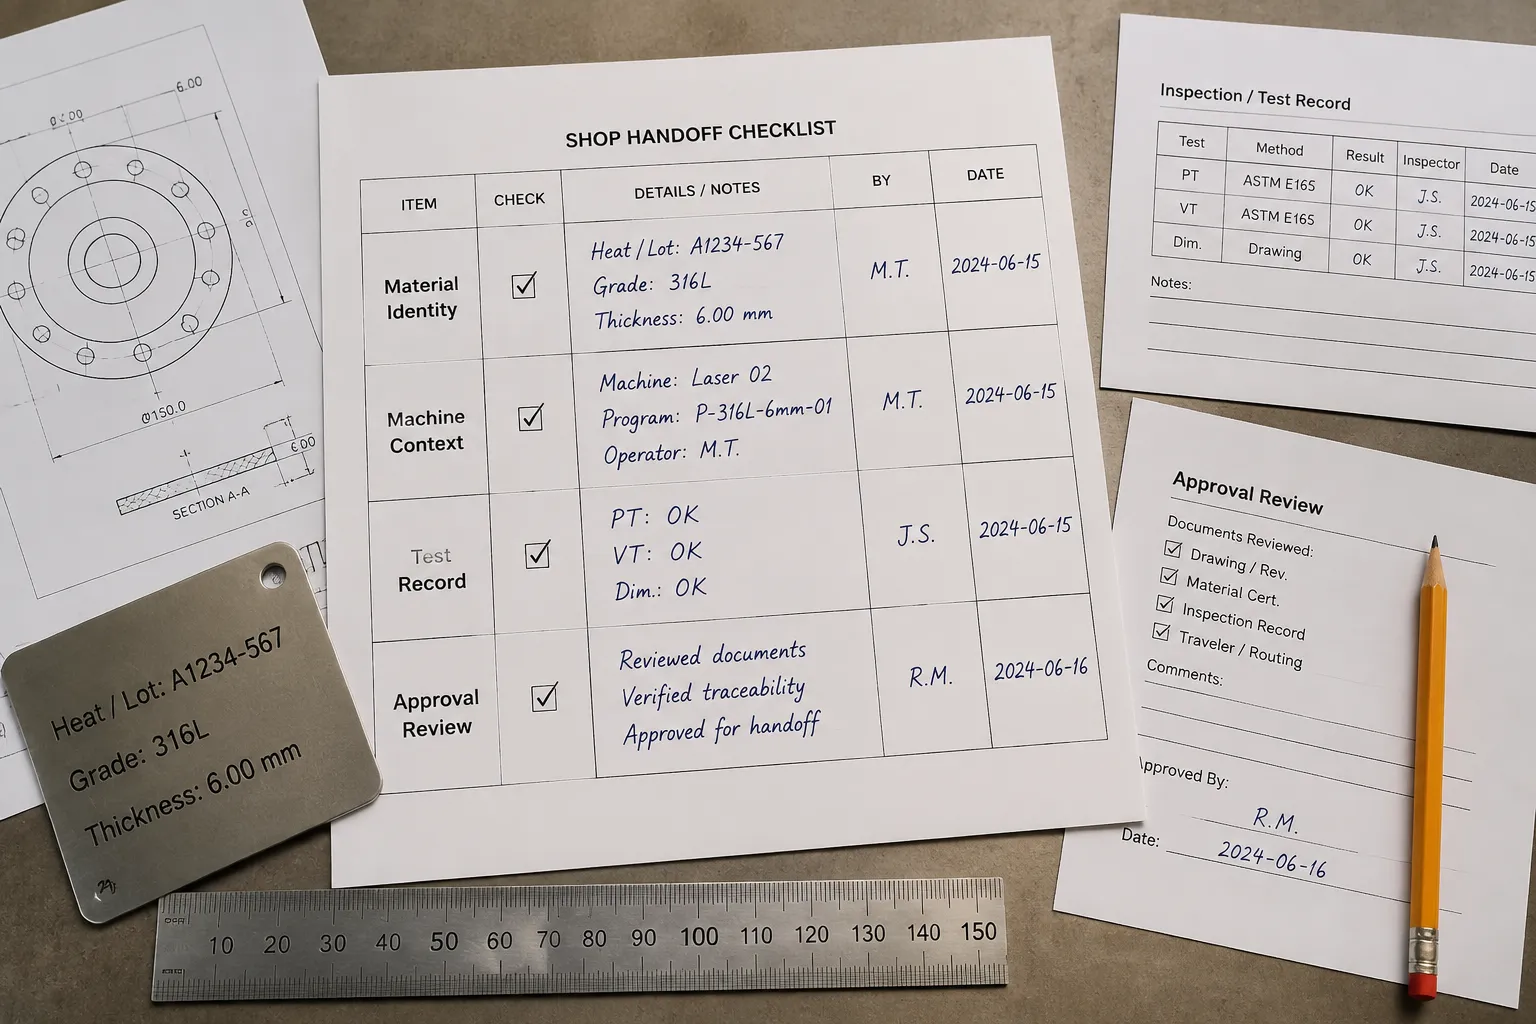 6.00
Ø150.0
6.00
SECTION A-A
SHOP HANDOFF CHECKLIST
ITEM CHECK DETAILS / NOTES BY DATE
Material Identity
Heat/Lot: A1234-567
Grade: 316L
Thickness: 6.00 mm
M.T. 2024-06-15
Machine Context
Machine: Laser 02
Program: P-316L-6mm-01
Operator: M.T.
M.T. 2024-06-15
Test Record
PT: OK
VT: OK
Dim.: OK
J.S. 2024-06-15
Approval Review
Reviewed documents
Verified traceability
Approved for handoff
R.M. 2024-06-16
Inspection / Test Record
Test Method Result Inspector Date
PT ASTM E165 OK J.S. 2024-06-15
VT ASTM E165 OK J.S. 2024-06-15
Dim. Drawing OK J.S. 2024-06-15
Notes:
Approval Review
Documents Reviewed:
Drawing / Rev.
Material Cert.
Inspection Record
Traveler / Routing
Comments:
Approved By:
R.M.
Date: 2024-06-16
Heat / Lot: A1234-567
Grade: 316L
Thickness: 6.00 mm
10 20 30 40 50 60 70 80 90 100 110 120 130 140 150